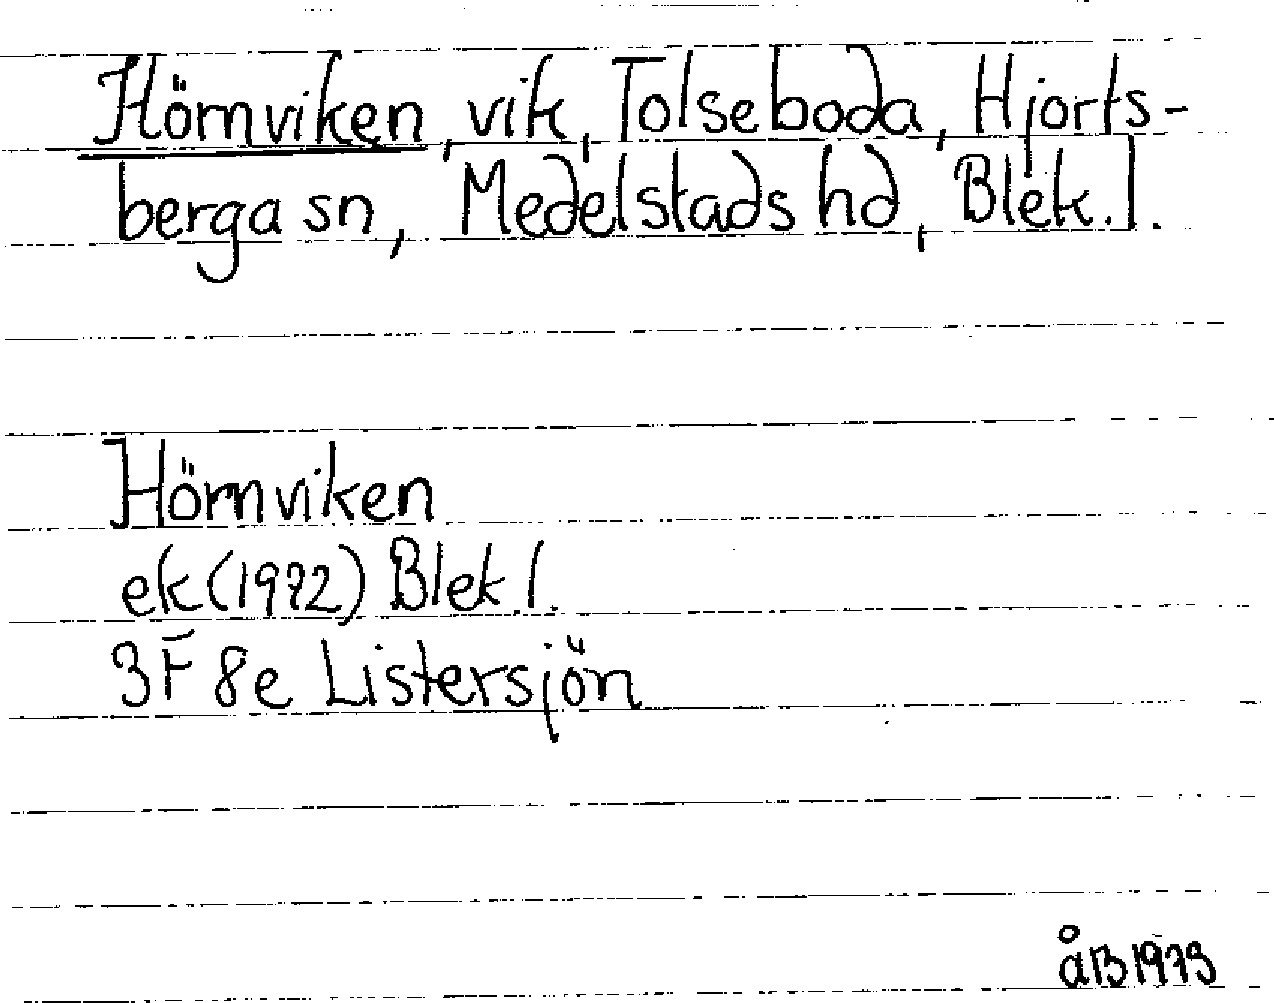 Hörnviken, vik, Tolseboda, Hjorts-
berga sn, Medelstads hd, Blek. l.
Hörnviken
ek (1972) Blek l.
3F 8e Listersjön
åB 1979